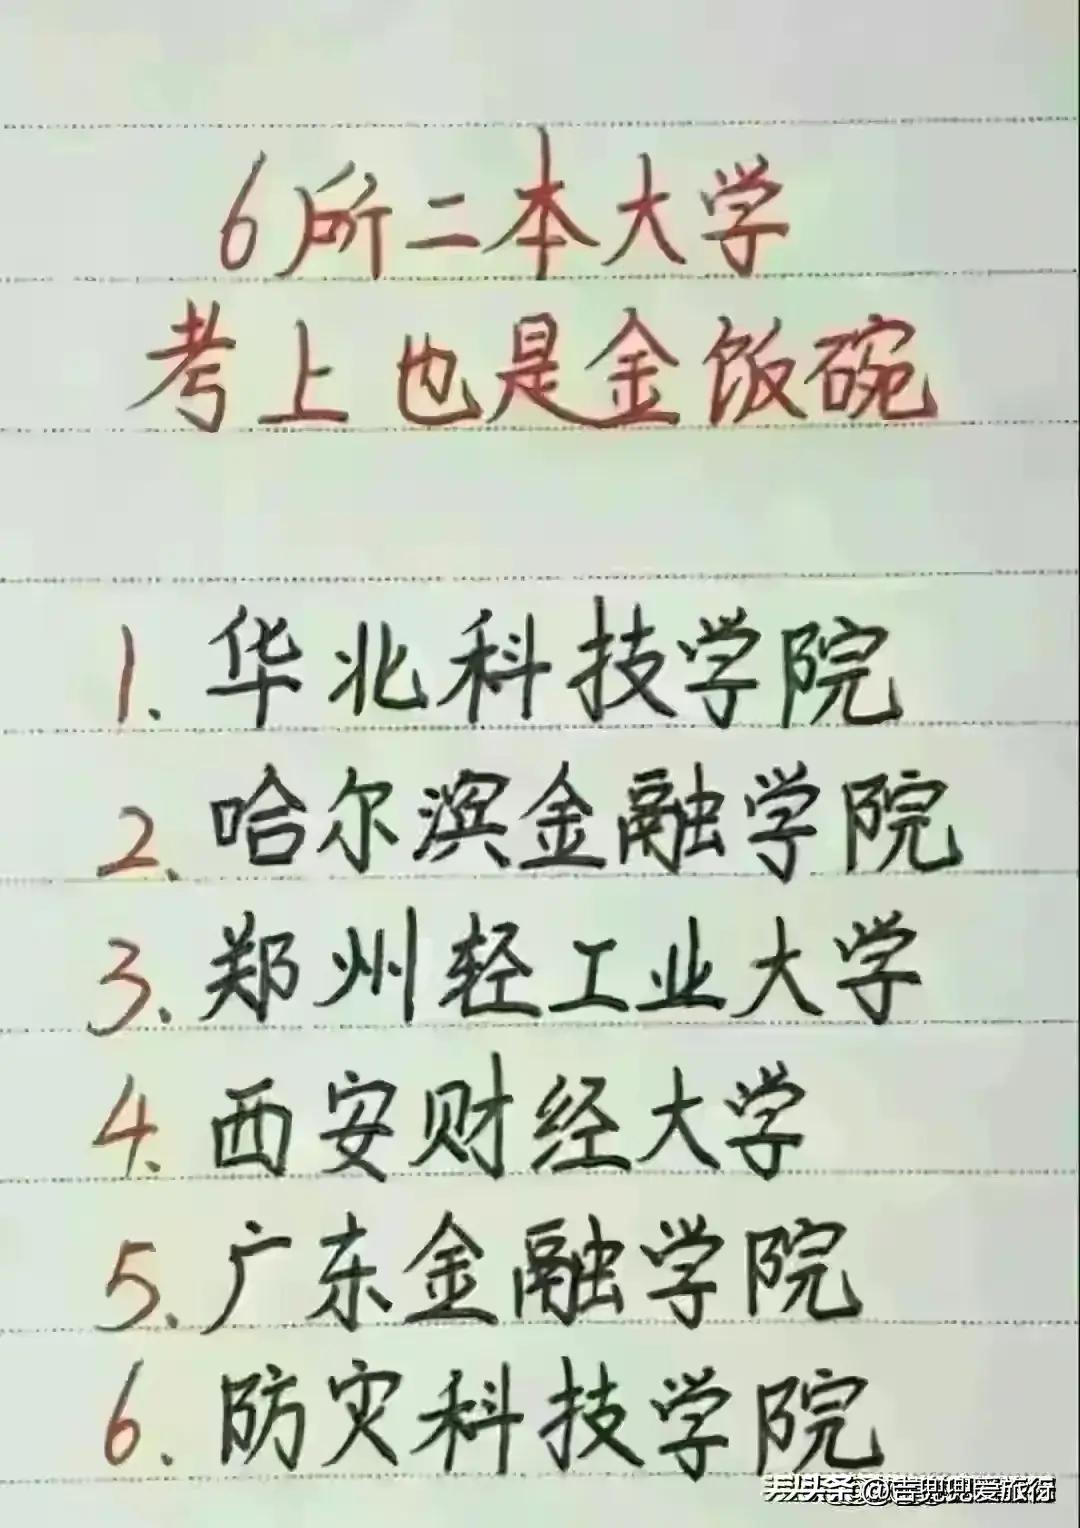 6所二本大学
考上也是金饭碗
1、华北科技学院
2、哈尔滨金融学院
3、郑州轻工业大学
4、西安财经大学
5、广东金融学院
6、防灾科技学院
头条@吉兜兜爱旅行